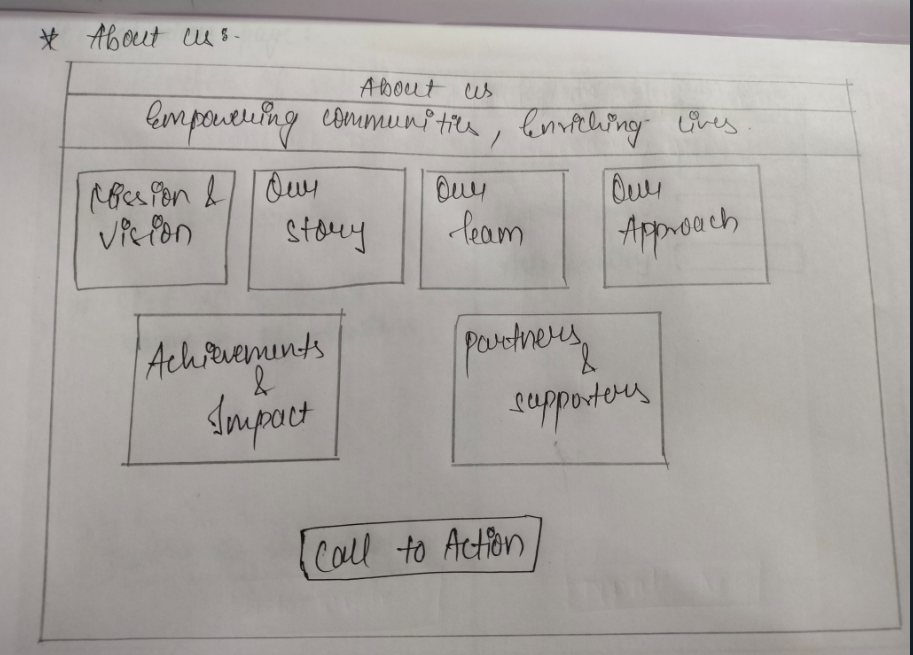 * About us:-
About us
Empowering communities, Enriching lives.
Mission &
Vision
Our
story
Our
team
Our
Approach
Achievements
&
Impact
partners
&
supporters
Call to Action